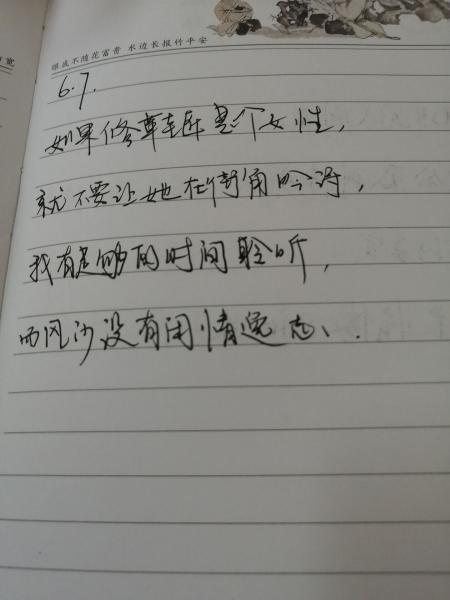 眼底不随花富贵 水边长报竹平安
6.7.
如果是个女性,
就不要让她在街角吟诗,
我有足够的时间聆听,
而风沙没有闲情逸志、.